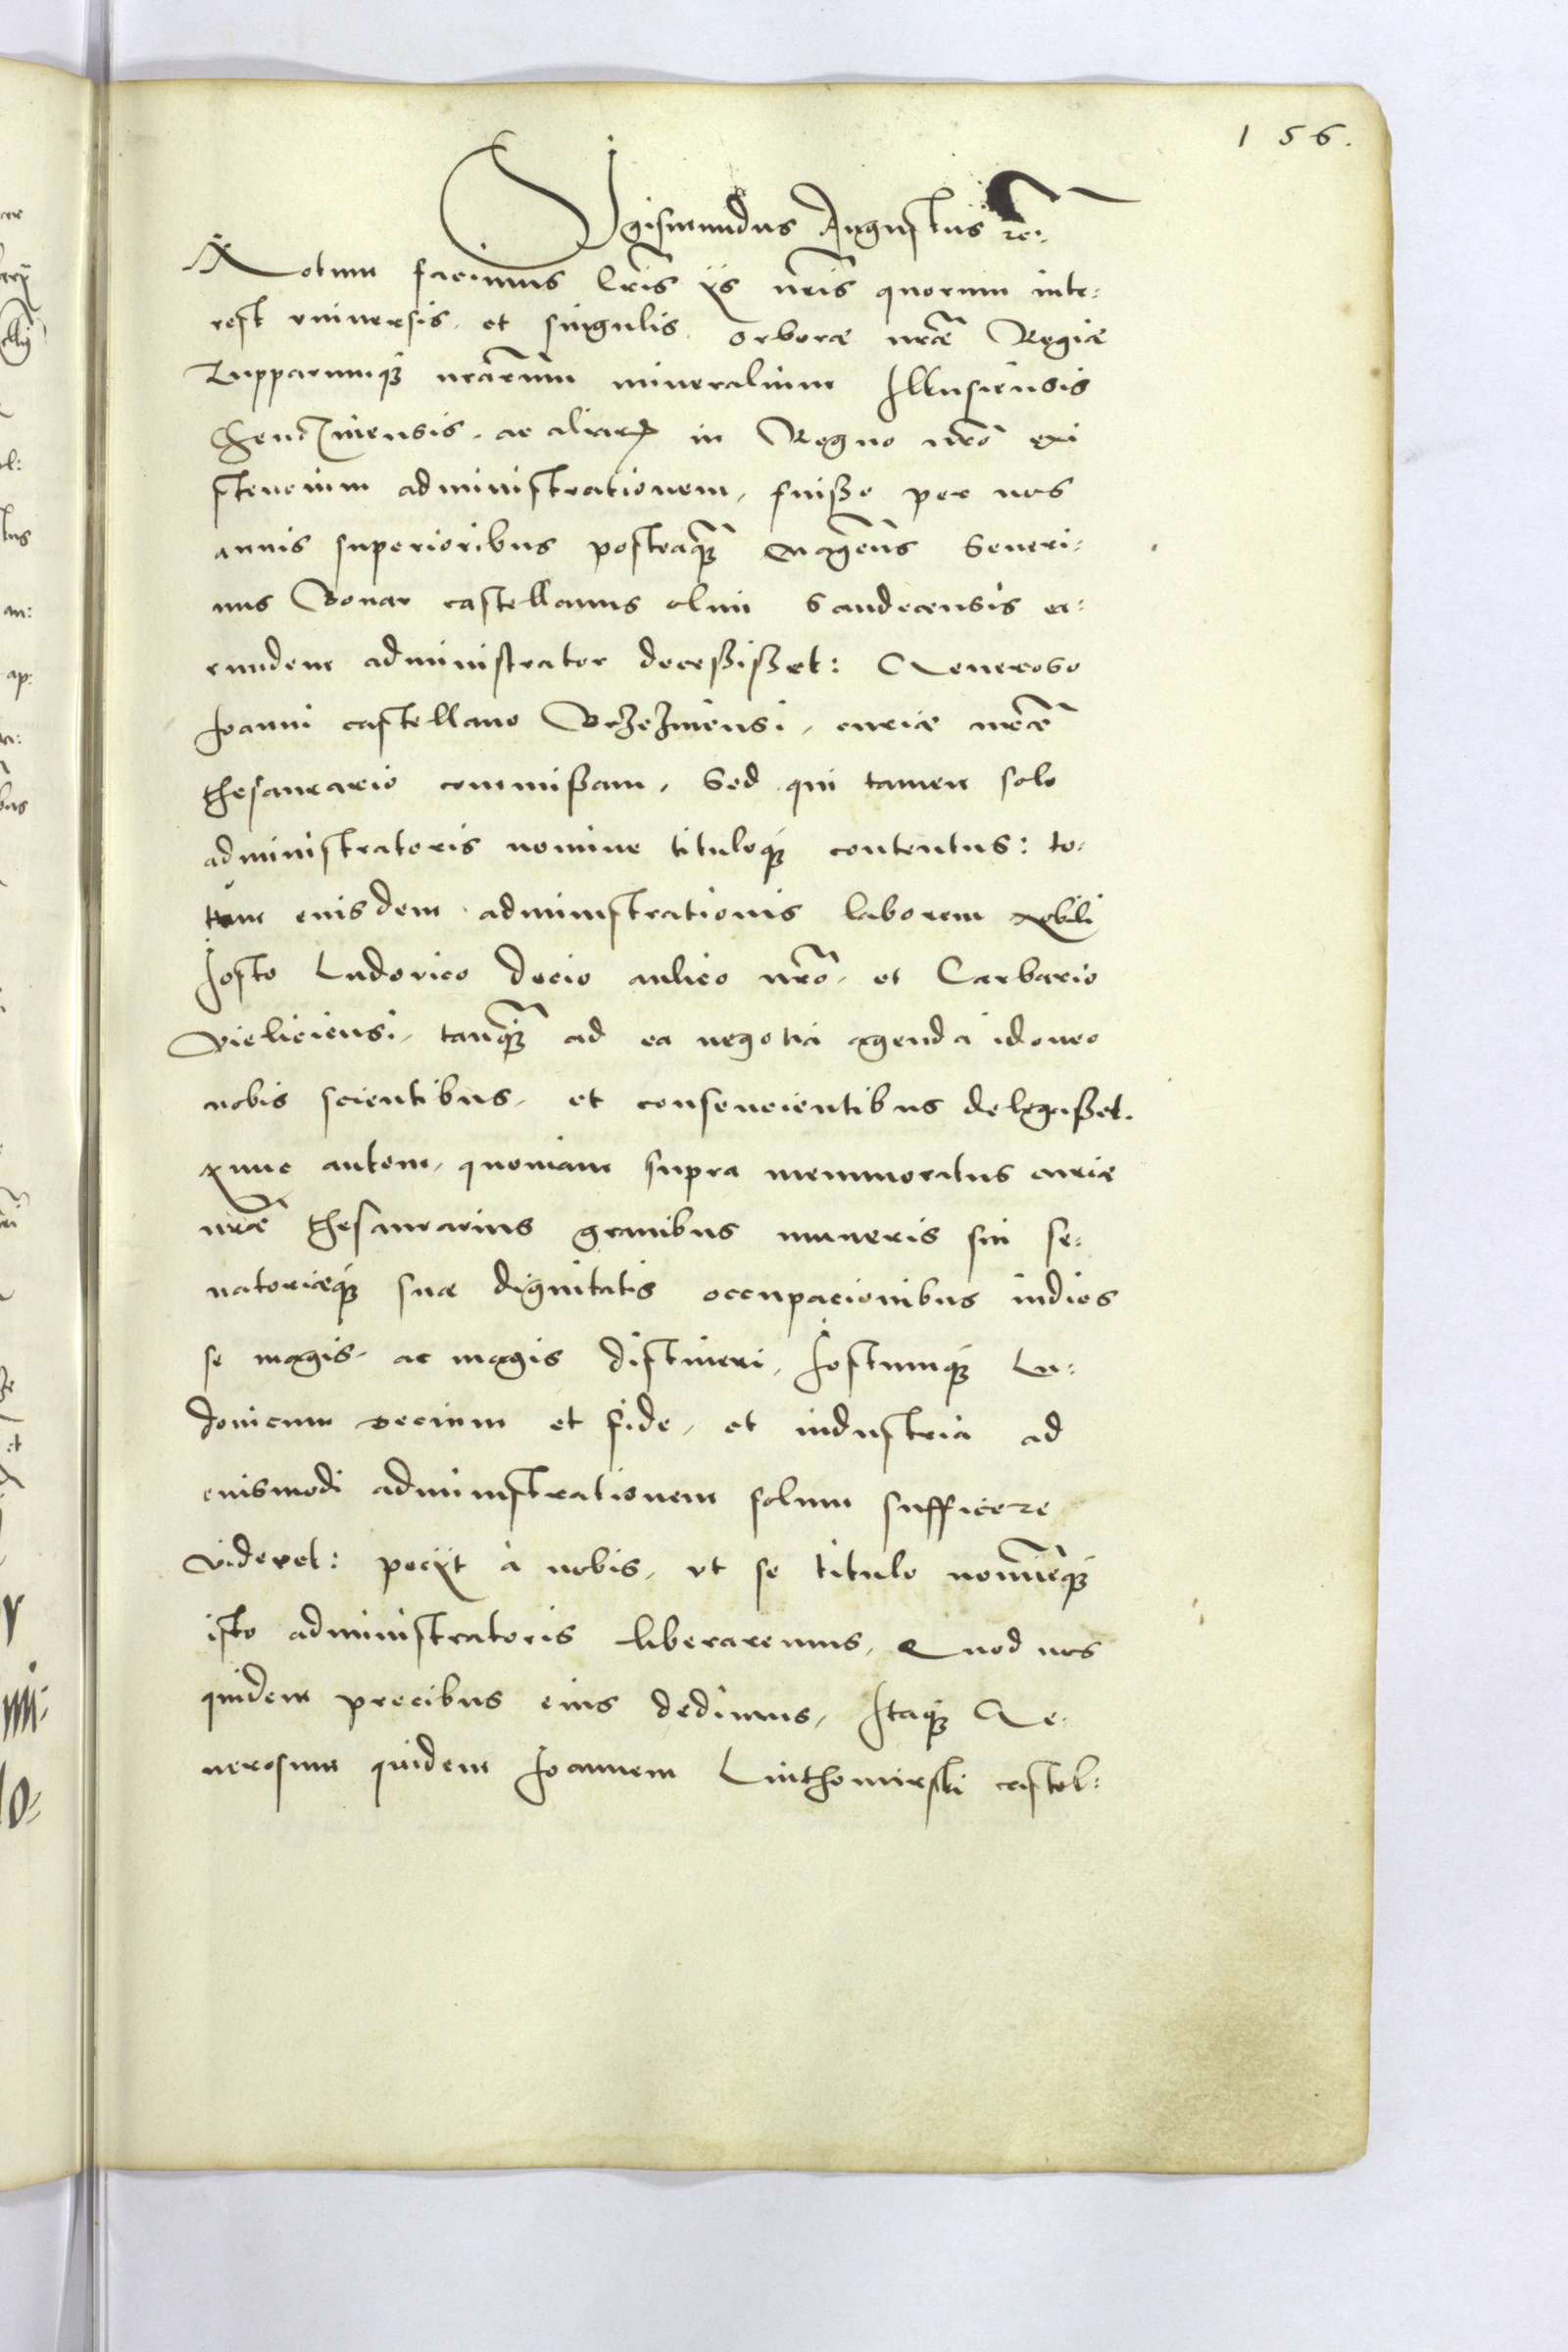 156.
Sigismundus Augustus etc:
Notum facimus lr̃is ijs nr̃is quorum inte:
rest vniversis, et singulis, orboræ nr̃æ Regiæ
Zupparumq́; nr̃arum mineralium Ilkusiensis
Chencinensis, ac aliarꝝ in Regno nr̃o exi
stencium administrationem, fuisse per nos
annis superioribus posteaq̃; Magcus Seueri:
nus Bonar castellanus olim Sandecensis ea:
rundem administrator decessisset: Generoso
Joanni castellano Brzezinensi, curiæ nr̃æ
thesaurario commissam, Sed qui tamen solo
administratoris nomine tituloq́; contentus: to:
tum euisdem administrationis laborem Nobili
Josto Ludovico Decio aulico nr̃o, et Carbario
Vieliciensi, tanq̃; ad ea negotia agenda idoneo
nobis scientibus, et consencientibus delegasset.
Nunc autem, quoniam supra memmoratus curiæ
nr̃æ thesaurarius grauibus muneris sui se:
natoriæq́; suæ dignitatis occupacionibus indies
se magis, ac magis distineri, Jostumq́; Lu:
douicum Decium et fide, et industria ad
euismodi administrationem solum sufficere
videret: pecijt à nobis, vt se titulo nomineq́;
isto administratoris liberaremus, Quod nos
quidem precibus eius dedimus, Itaq́; Ge:
nerosum quidem Joannem Luthomirski castel: